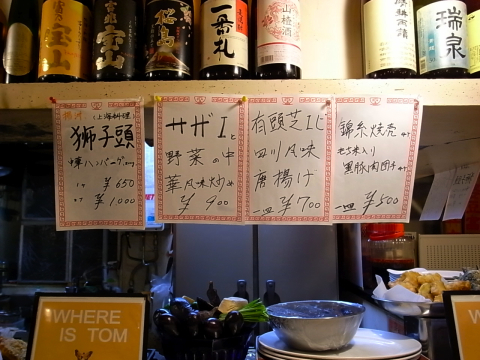 宝山
宝山
桜島
一番札
山楂酒
瑞泉
揚州
(上海料理)
獅子頭
蟹ハンバーグ
1ヶ ¥650
2ヶ ¥1000
サザエと
野菜の中
華風味炒め
¥900
有頭芝エビ
四川風味
唐揚げ
一皿 ¥700
錦糸焼売
もち米入り
黒豚肉団子
一皿 ¥500
WHERE
IS TOM
WH
IS